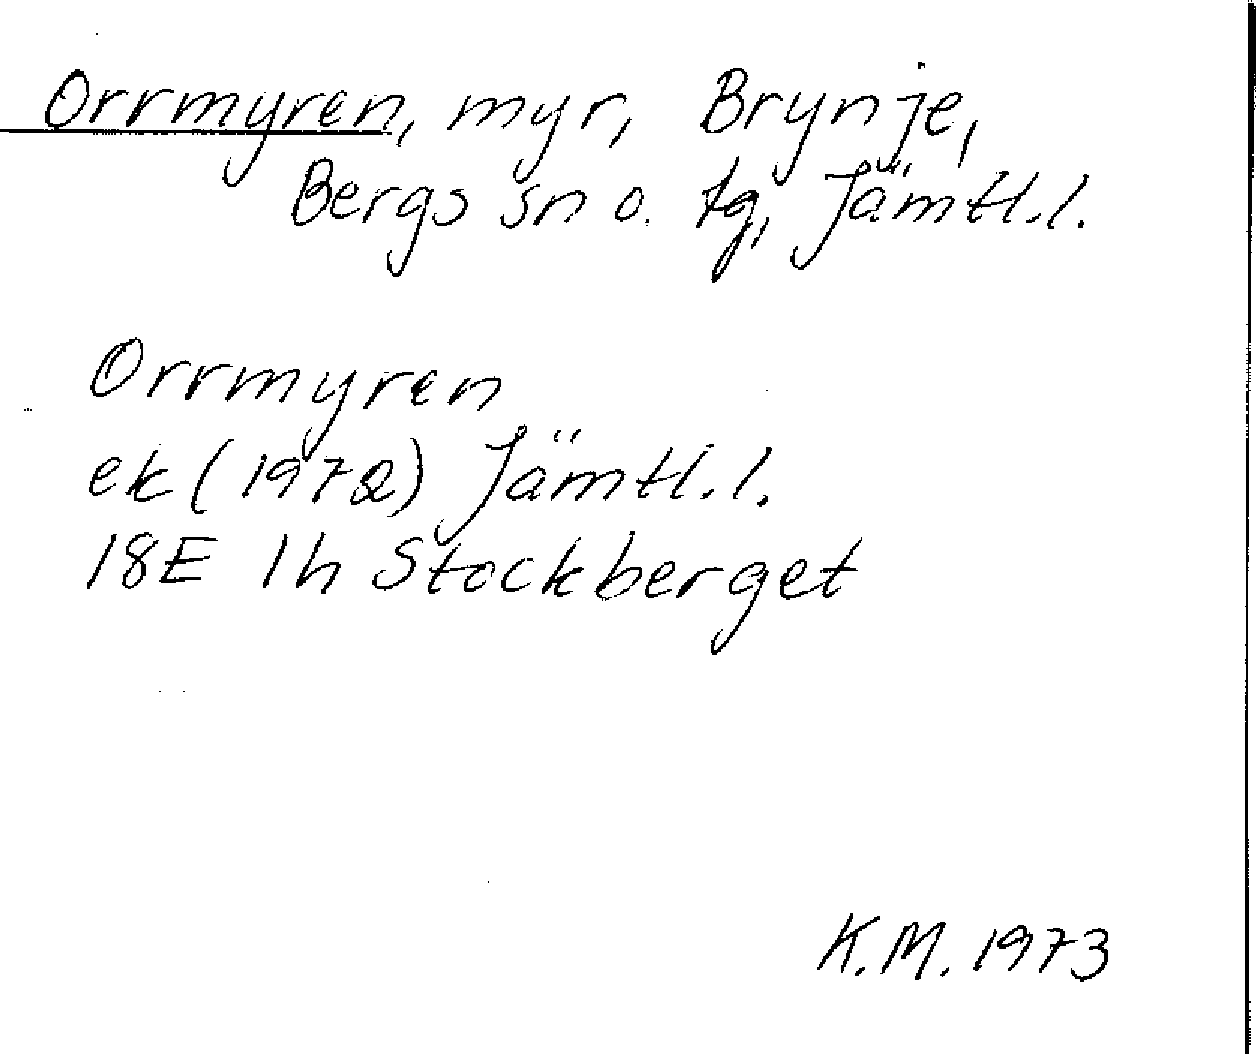 Orrmyren, myr, Brynje,
Bergs sn o. tg, Jämtl.l.
Orrmyren
ek (1972) Jämtl.l.
18E 1h Stockberget
K.M. 1973